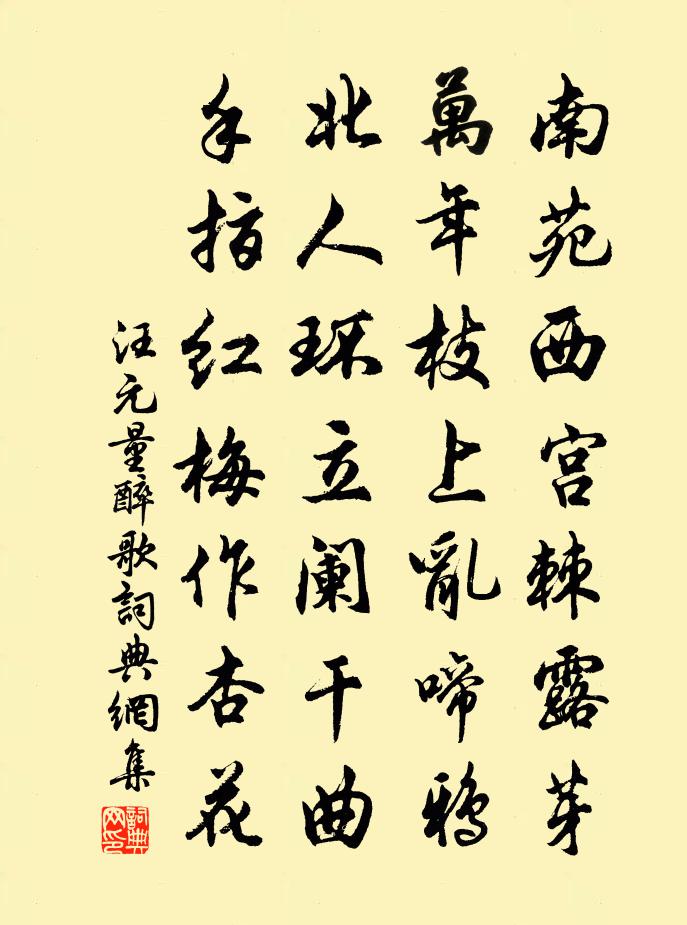 南苑西宮棘露芽
萬年枝上亂啼鴉
北人环立阑干曲
手指红梅作杏花
汪元量醉歌詞典網集
詞典网印